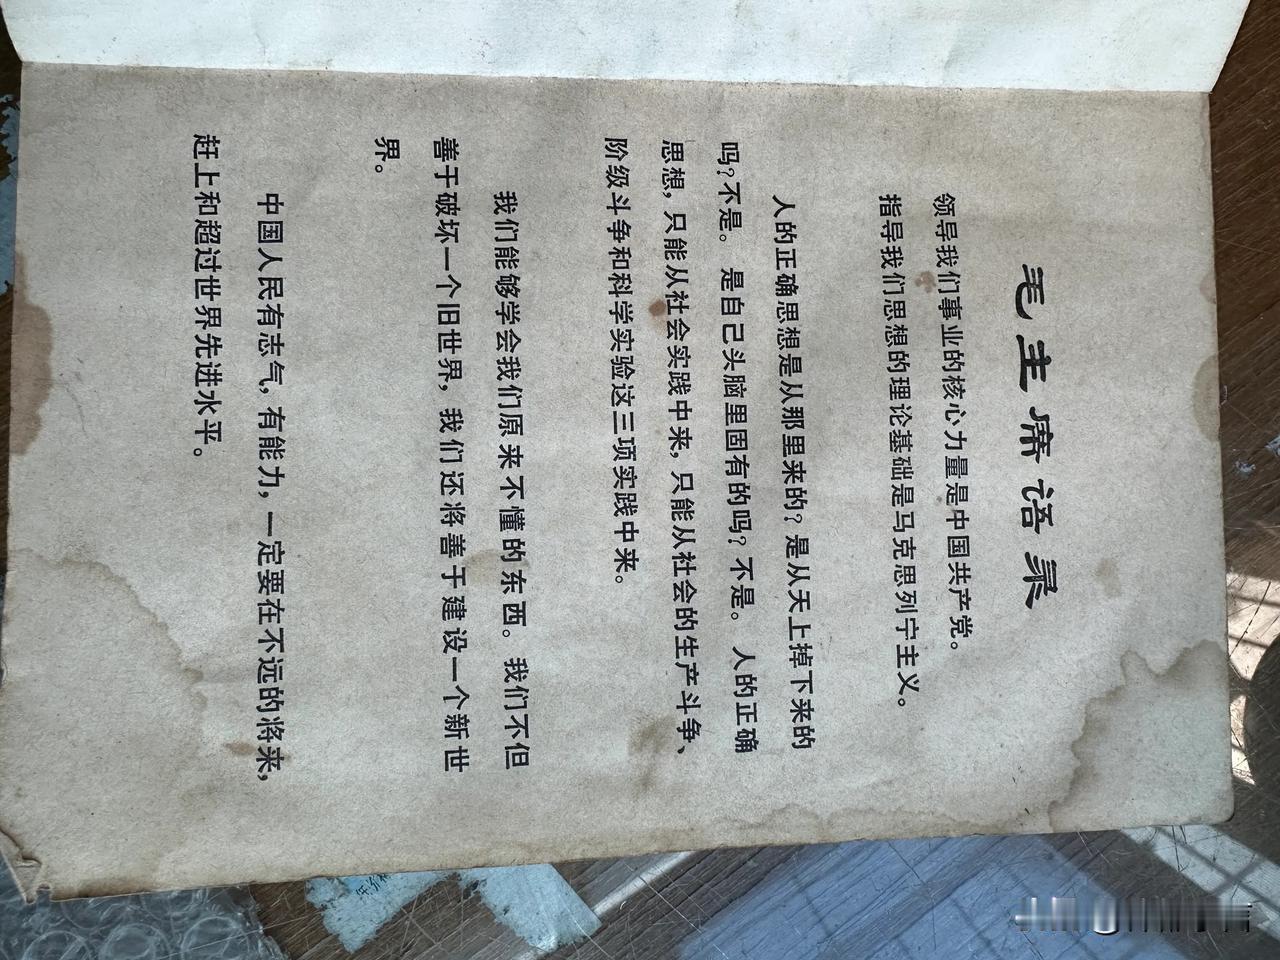 毛主席语录
领导我们事业的核心力量是中国共产党。
指导我们思想的理论基础是马克思列宁主义。
人的正确思想是从那里来的?是从天上掉下来的
吗?不是。是自己头脑里固有的吗?不是。人的正确
思想,只能从社会实践中来,只能从社会的生产斗争、
阶级斗争和科学实验这三项实践中来。
我们能够学会我们原来不懂的东西。我们不但
善于破坏一个旧世界,我们还将善于建设一个新世
界。
中国人民有志气,有能力,一定要在不远的将来,
赶上和超过世界先进水平。